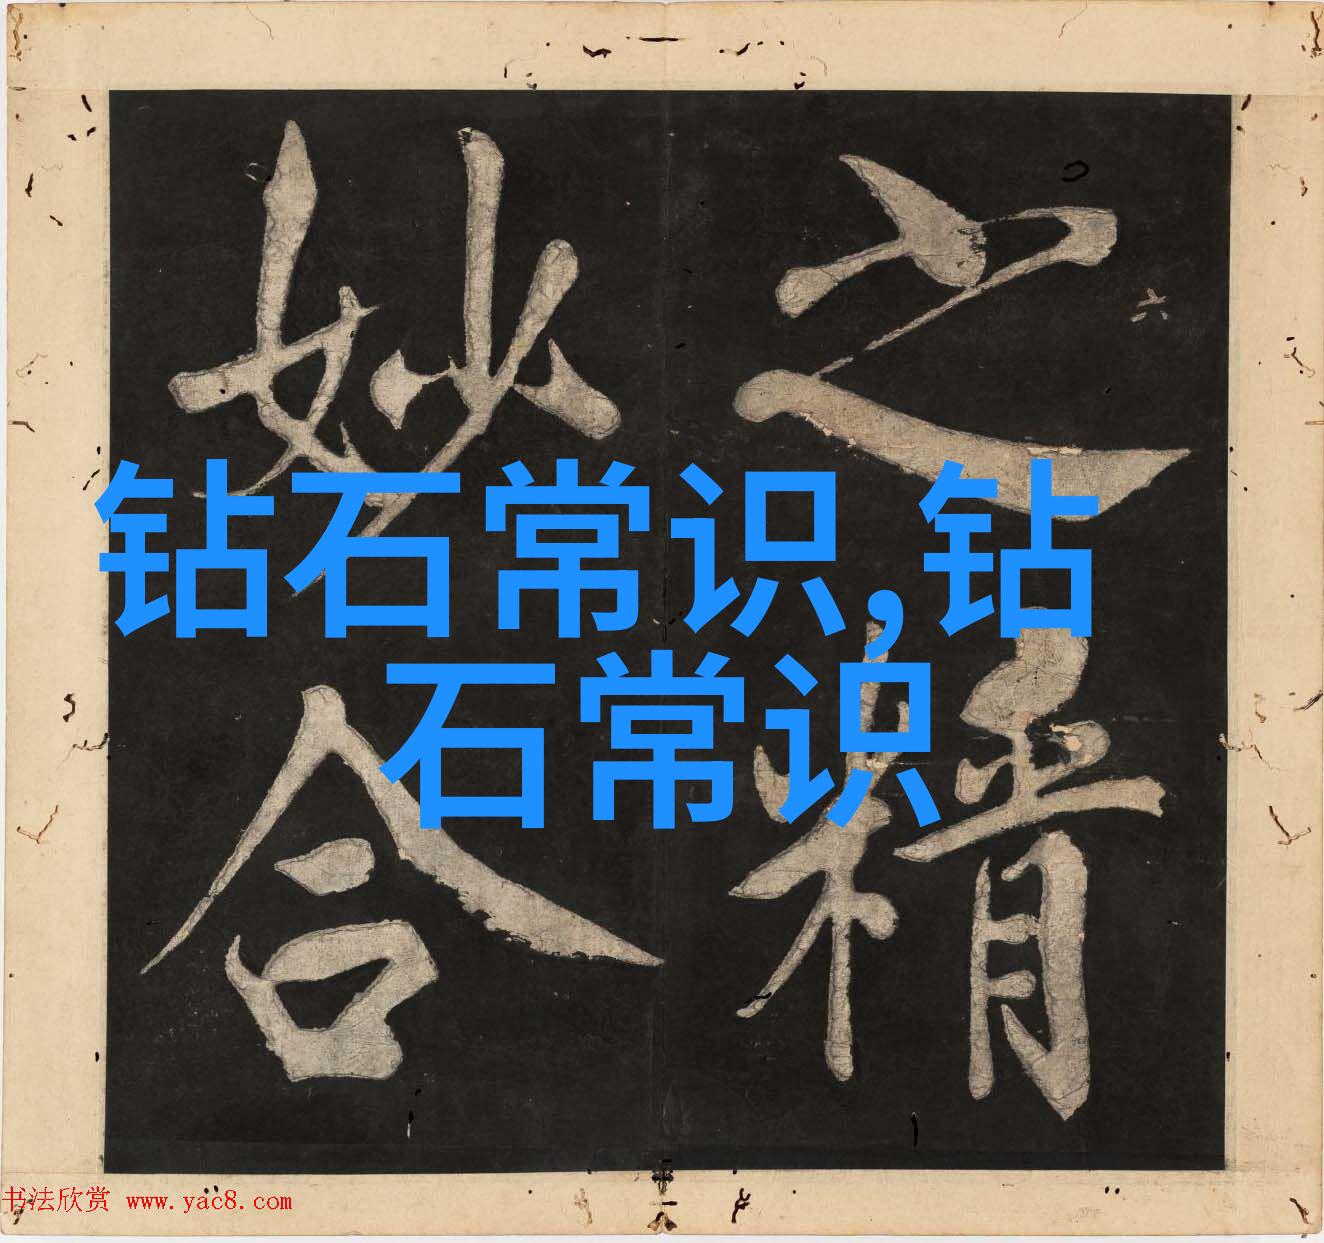 之精
妙合
六
钻石常识,钻
石常识
书法欣赏 www.yac8.com